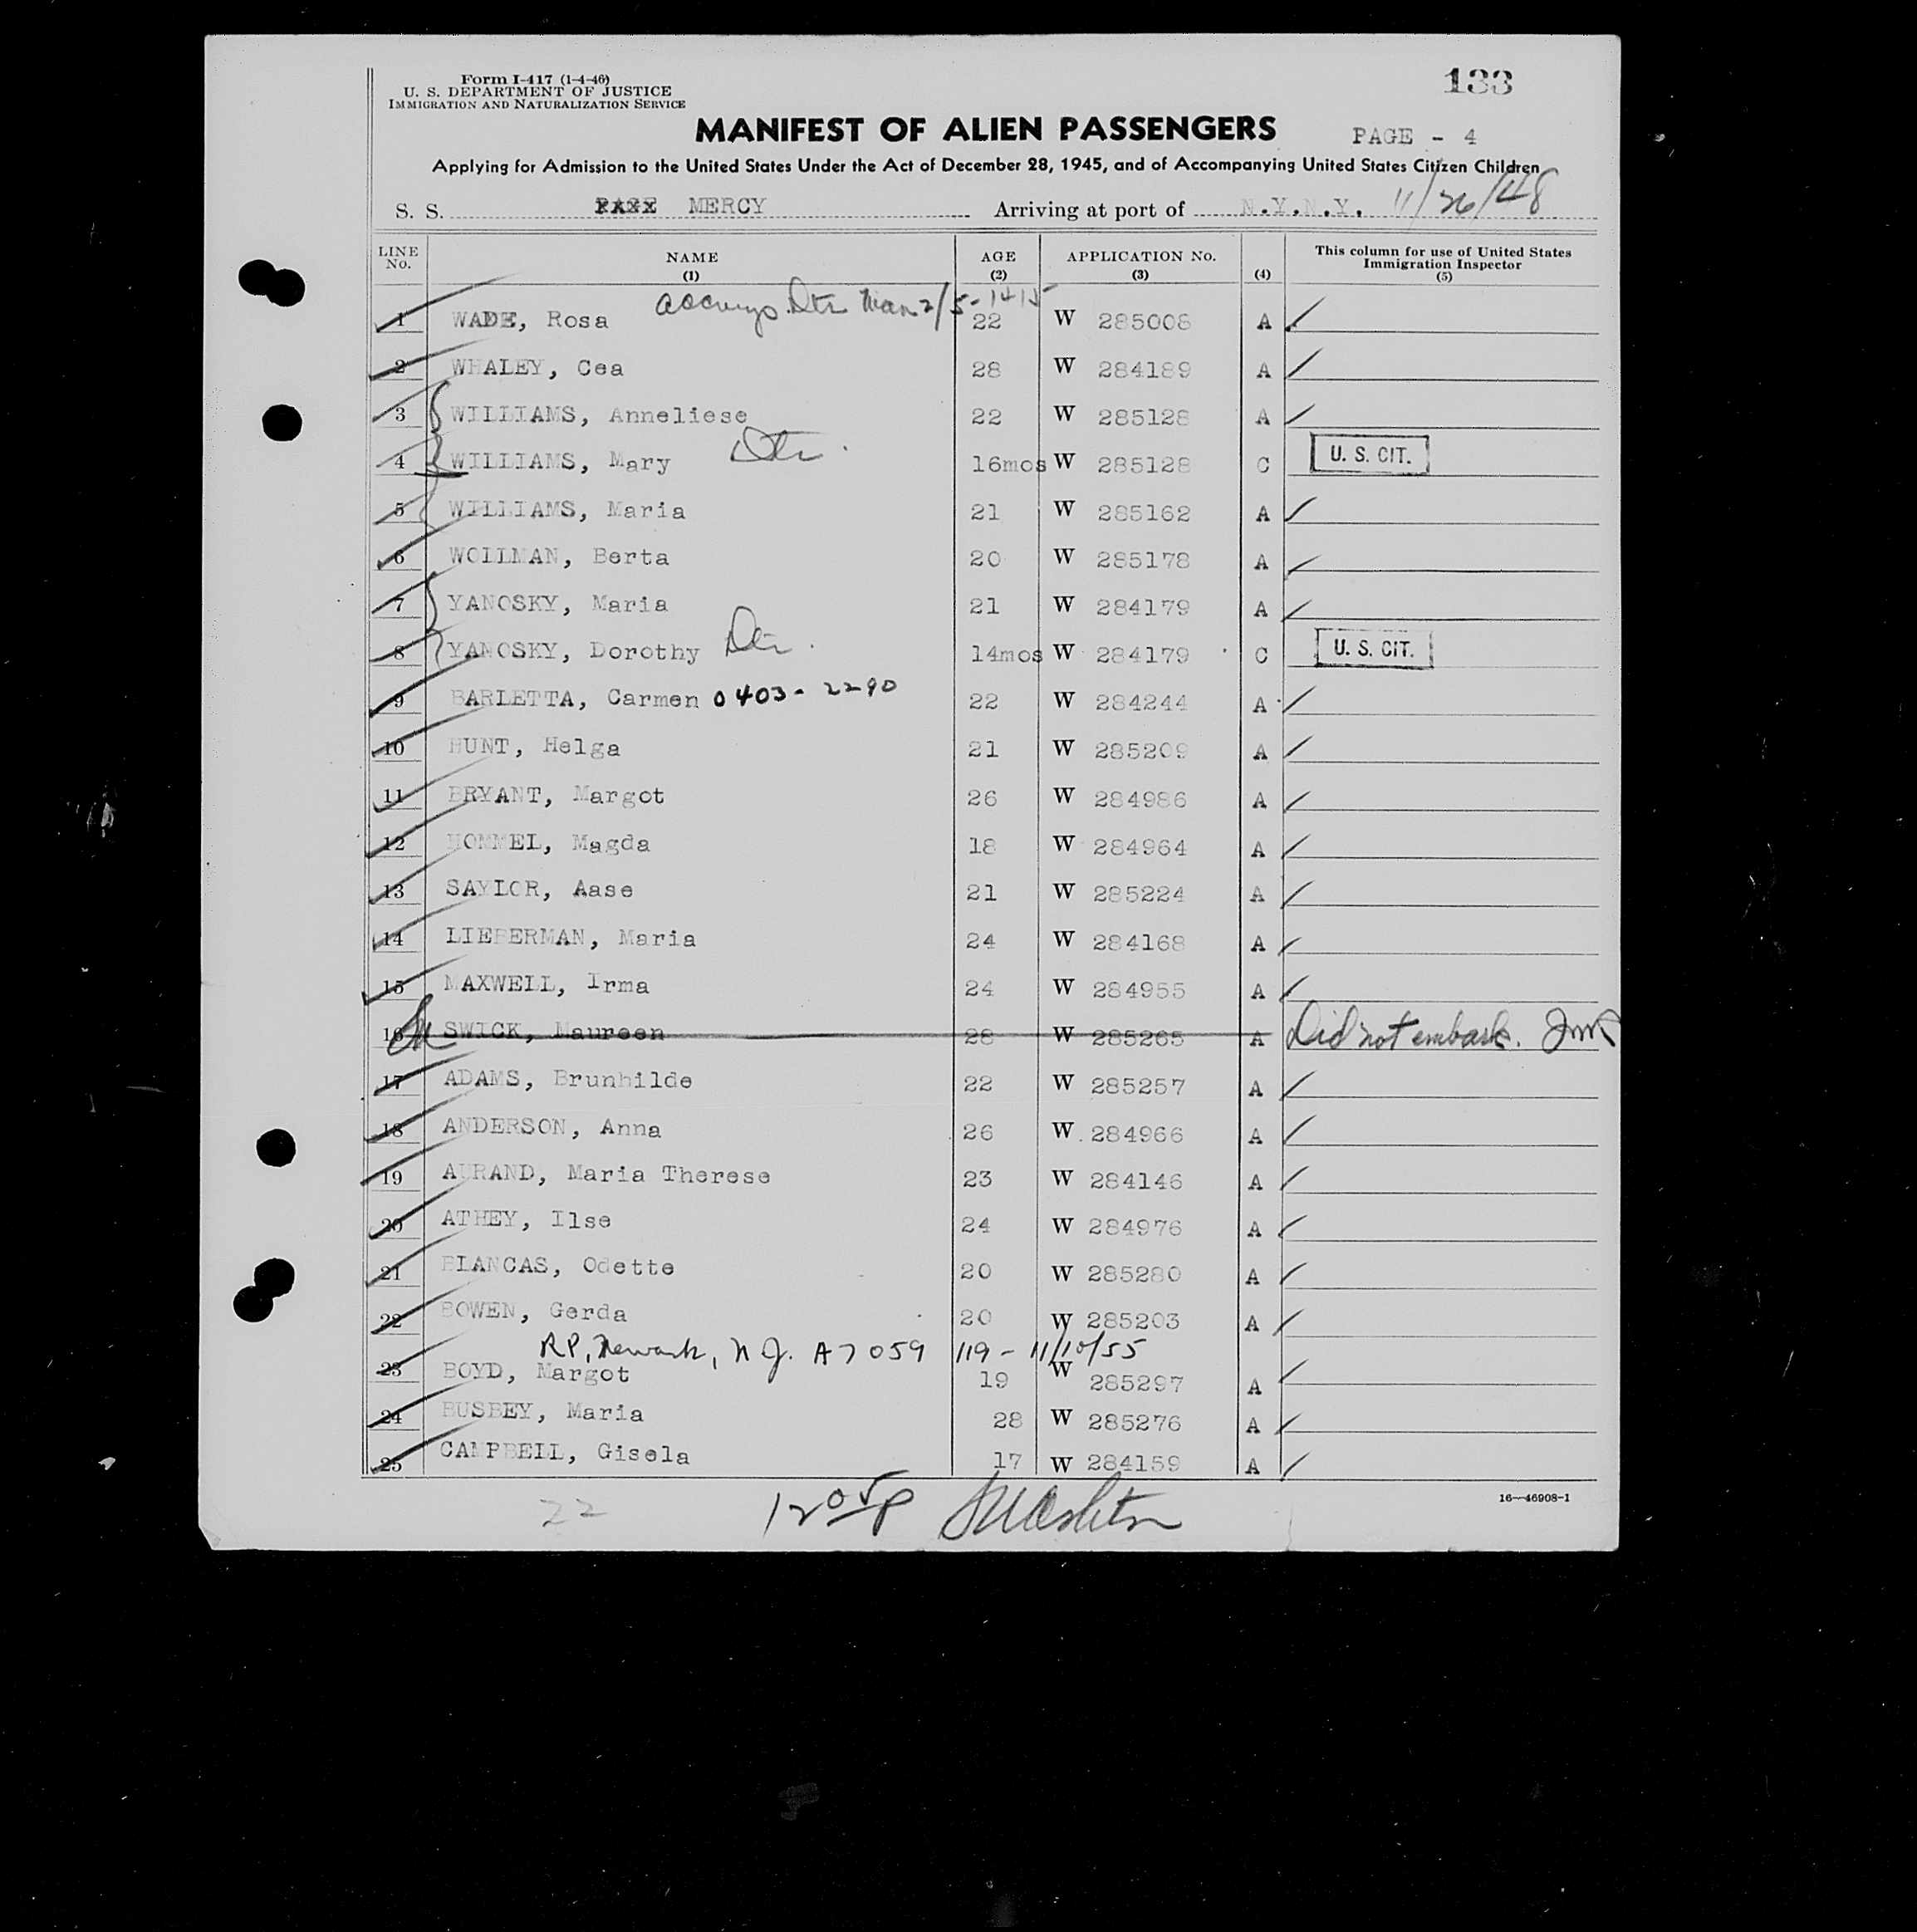 Form I-417 (1-4-46)
U. S. DEPARTMENT OF JUSTICE
IMMIGRATION AND NATURALIZATION SERVICE
133
MANIFEST OF ALIEN PASSENGERS
PAGE - 4
Applying for Admission to the United States Under the Act of December 28, 1945, and of Accompanying United States Citizen Children
S. S. MERCY Arriving at port of N.Y.N.Y. 11/26/48
LINE No. NAME (1) AGE (2) APPLICATION No. (3) (4) This column for use of United States Immigration Inspector (5)
Dtr
1 WADE, Rosa 22 W 285008 A
2 WHALEY, Cea 28 W 284189 A
3 WILLIAMS, Anneliese 22 W 285128 A
4 WILLIAMS, Mary Dtr. 16mos W 285128 C U. S. CIT.
5 WILLIAMS, Maria 21 W 285162 A
6 WOLLMAN, Berta 20 W 285178 A
7 YANOSKY, Maria 21 W 284179 A
8 YANOSKY, Dorothy Dtr. 14mos W 284179 C U. S. CIT.
9 BARLETTA, Carmen 0403-2290 22 W 284244 A
10 HUNT, Helga 21 W 285209 A
11 BRYANT, Margot 26 W 284986 A
12 HOMMEL, Magda 18 W 284964 A
13 SAYLOR, Aase 21 W 285224 A
14 LIEBERMAN, Maria 24 W 284168 A
15 MAXWELL, Irma 24 W 284955 A
16 SWICK, Maureen 28 W 285265 A Did not embark.
17 ADAMS, Brunhilde 22 W 285257 A
18 ANDERSON, Anna 26 W 284966 A
19 AURAND, Maria Therese 23 W 284146 A
20 ATHEY, Ilse 24 W 284976 A
21 BLANCAS, Odette 20 W 285280 A
22 BOWEN, Gerda 20 W 285203 A
RP, Newark, N.J. A7059 119 - 11/10/55
23 BOYD, Margot 19 W 285297 A
24 BUSBEY, Maria 28 W 285276 A
25 CAMPBELL, Gisela 17 W 284159 A
16—46908-1
22 1205P